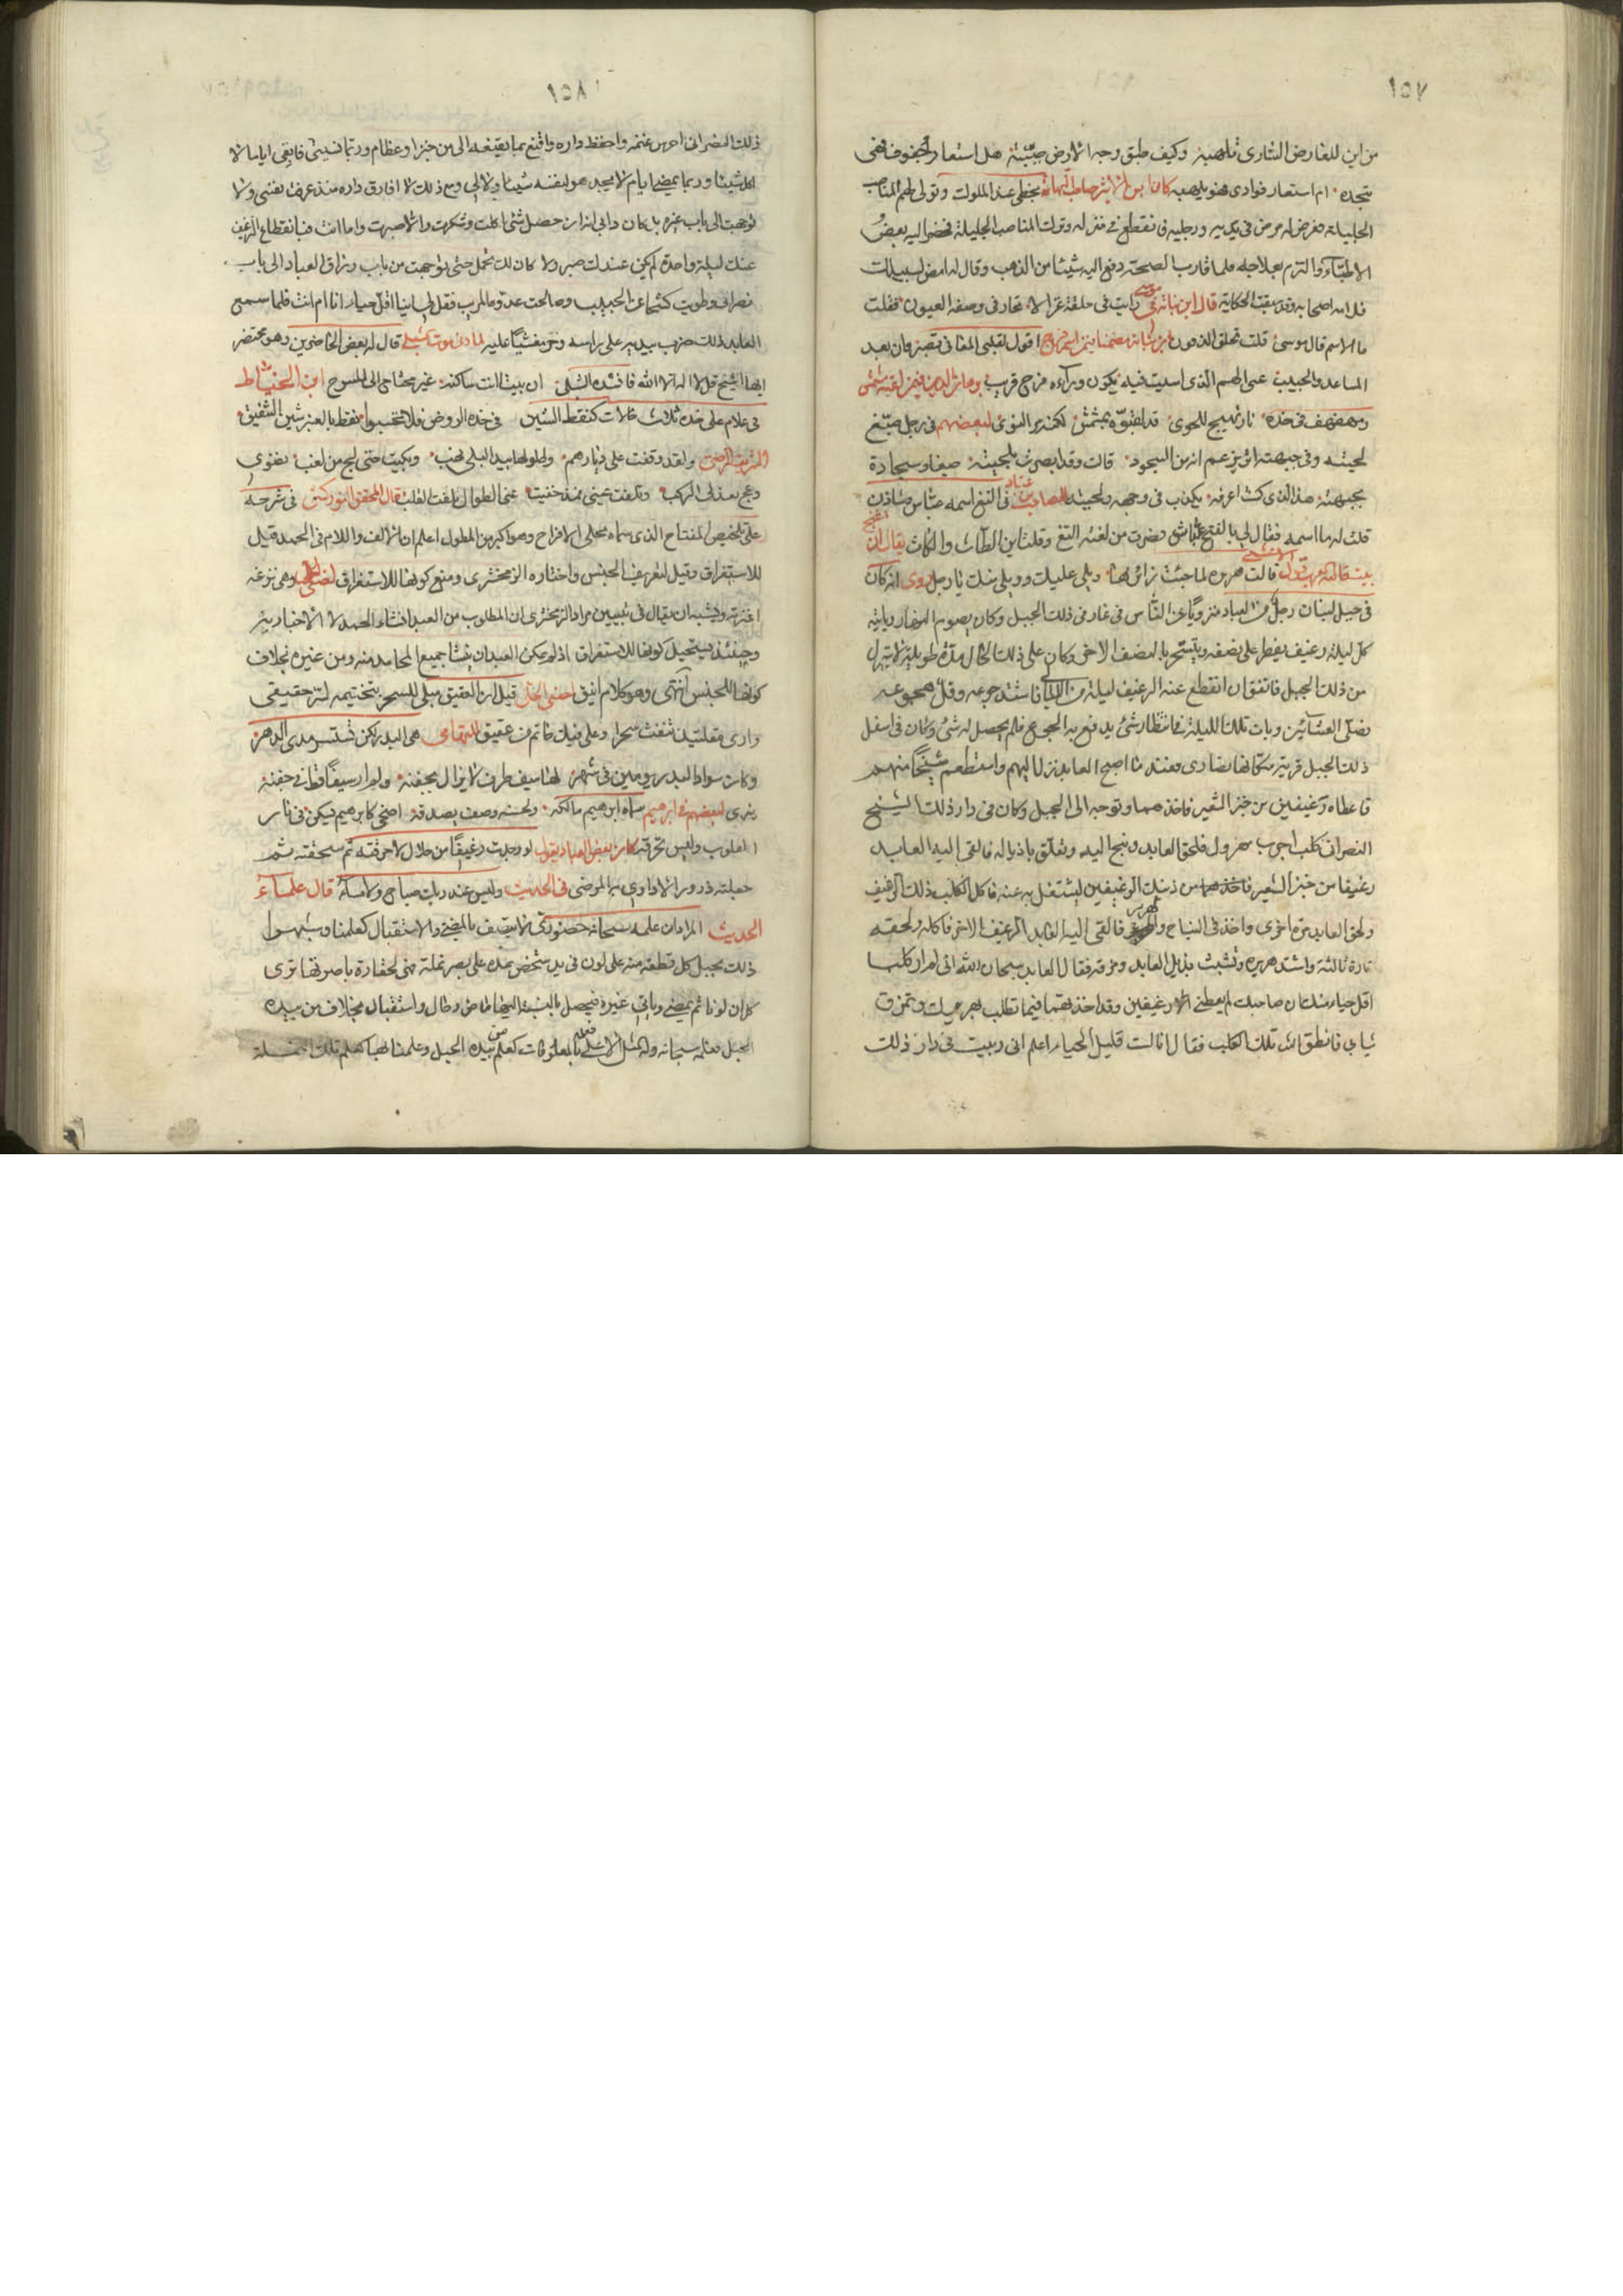 ١٥٧
من اين للعارض الساري تلهبه وكيف طبق وجه الارض صيبه هل استعار جفوني فهي
تنجده ام استعار فوادي فهو يلهبه كان ابن الاثير صاحب النهاية يحظى عند الملوك وتولى لهم المناصب
الجليلة فعرض له مرض في يديه ورجليه فانقطع في منزله وترك المناصب الجليلة فحضر اليه بعض
الاطباء والتزم بعلاجه فلما قارب الصحة دفع اليه شيئا من الذهب وقال له امض لسبيلك
فلامه اصحابه وقد سبقت الحكاية قال ابن نباته في موسى رايت في حلقة غزالا تحار في وصفه العيون فقلت
ما الاسم قال موسى قلت تحلق الذقون اقول لقلبي المعاني تصبر وان بعد
المساعد والحبيب عسى الهم الذي امسيت فيه يكون وراءه فرج قريب
ومهفهف في خده نار تهيج للجوى قد لقبوه بمشمش لكنه مر النوى لبعضهم في رجل صبغ
لحيته وفي جبهته اثر يزعم انه من السجود قالت وقد ابصرت بلحيته صبغا وسجادة
بجبهته هذا الذي كنت اعرفه يكذب في وجهه ولحيته الصاحب بن عباد في الثغ اسمه عباس وشادن
قلت له ما اسمه فقال لي بالفتح عباث فصرت من لثغته الثغ وقلت اين الطاث والكاث يقال ان اغنج
بيت قالته العرب قول الاعشى قالت هريره لما جئت زائرها ويلي عليك وويلي منك يا رجل روى انه كان
في جبل لبنان رجل من العباد منزويا عن الناس في غار في ذلك الجبل وكان يصوم النهار وياتيه
كل ليلة رغيف يفطر على نصفه ويتسحر بالنصف الاخر وكان على ذلك الحال مدة طويلة لا ينزل
من ذلك الجبل فاتفق ان انقطع عنه الرغيف ليلة من الليالي فاشتد جوعه وقل هجوعه
فصلى العشائين وبات تلك الليلة في انتظار شئ يدفع به الجوع فلم يحصل له شئ وكان في اسفل
ذلك الجبل قرية سكانها نصارى فعند ما اصبح العابد نزل اليهم واستطعم شيخا منهم
فاعطاه رغيفين من خبز الشعير فاخذهما وتوجه الى الجبل وكان في دار ذلك الشيخ
النصراني كلب اجرب مهزول فلحق العابد ونبح اليه وتعلق باذياله فالقى اليه العابد
رغيفا من خبز الشعير من ذينك الرغيفين ليشتغل به عنه فاكل الكلب ذلك الرغيف
ولحق العابد مرة اخرى واخذ في النباح والهرير فالقى اليه العابد الرغيف الاخر فاكله ولحقه
تارة ثالثة واشتد هريره وتشبث بذيل العابد ومزقه فقال العابد سبحان الله اني لم ار كلبا
اقل حياء منك ان صاحبك لم يعطني الا رغيفين وقد اخذتهما فيما تطلب بهريرك وتمزق
ثيابي فانطق الله تلك الكلب فقال انا لست قليل الحياء اعلم اني ربيت في دار ذلك
١٥٨
ذلك النصراني احرس غنمه واحفظ داره واقنع بما يدفعه الي من خبز او عظام وربما نسيني فابقى اياما لا
اكل شيئا وربما يمضي ايام لا يجد هو لنفسه شيئا ولا لي ومع ذلك لا افارق داره منذ عرفت نفسي ولا
توجهت الى باب غيره بل كان دابي انه ان حصل شئ اكلت وشكرت والا صبرت واما انت فبانقطاع الرغيف
عنك ليلة واحدة لم يكن عندك صبر ولا كان لك تحمل حتى توجهت من باب رزاق العباد الى باب
نصراني وطويت كشحا عن الحبيب وصالحت عدوه المريب فقل لي اينا اقل حياء انا ام انت فلما سمع
العابد ذلك ضرب بيديه على راسه وخر مغشيا عليه لما دنى موت الشبلي قال له بعض الحاضرين وهو محتضر
ايها الشيخ قل لا اله الا الله فانشد الشبلي ان بيتا انت ساكنه غير محتاج الى السرج ابن الخياط
في غلام على خده ثلاث خالات كنقط الشين في خده الروض فلا تحسبوا نقط بالعنبر شين الشقيق
الشريف الرضي ولقد وقفت على ديارهم وطلولها بيد البلى نهب وبكيت حتى لج من لغب نضوي
وعج بعذلي الركب وتلفتت عيني فمذ خفيت عني الطلول تلفت القلب قال المحقق الزركشي في شرحه
على تلخيص المفتاح الذي سماه مجلي الافراح وهو اكبر من المطول اعلم ان الالف واللام في الحمد قيل
للاستغراق وقيل لتعريف الجنس واختاره الزمخشري ومنع كونها للاستغراق وهي نزغة
اعتزلية ويشبه ان يقال في تبيين مراد الزمخشري ان المطلوب من العبد انشاء الحمد لا الاخبار به
وحينئذ يستحيل كونها للاستغراق اذ لم يمكن العبد ان ينشا جميع المحامد منه ومن غيره بخلاف
كونها للجنس انتهى وهو كلام انيق قيل ان العقيق يبطل السحر بتختيمه لسر حقيقي
وارى مقلتيك تنفث سحرا وعلى فيك خاتم من عقيق هي البدر لكن تستسر مدى الدهر
وكان سرار البدر يومين في شهر لها سيف طرف لا يزال بجفنه ولم ار سيفا قط في جفنه
يفرى لبعضهم في ابرهيم سماه ابرهيم مالكه ولحسنه وصف يصدقه اضحى كابرهيم يسكن في نار
القلوب وليس تحرقه كان بعض العباد يقول لو وجدت رغيفا من حلال لاحرقته ثم سحقته ثم
جعلته ذرورا لاداوي به المرضى في الحديث وليس عند ربك صباح ولا مساء قال علماء
الحديث المراد ان علمه سبحانه حضوري لا يتصف بالمضي والاستقبال كعلمنا وشبهوا
ذلك بحبل كل قطعة منه على لون في يد شخص يمده على بصر نملة فهي لحقارة باصرتها ترى
كل ان لونا ثم يمضي وياتي غيره فيحصل بالنسبة اليها ماض وحال واستقبال بخلاف من بيده
الحبل فعلمه سبحانه وله المثل الاعلى بالمعلومات كعلم من بيده الحبل وعلمنا بها كعلم تلك النملة